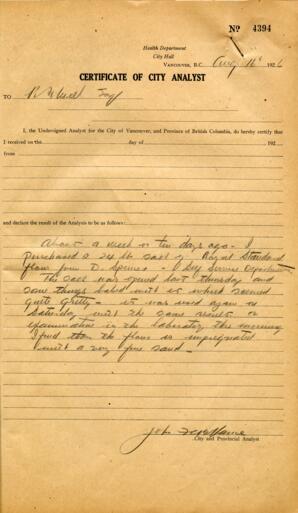 No 4394
Health Department
City Hall
VANCOUVER, B.C. Aug 16 1926
CERTIFICATE OF CITY ANALYST
TO
I, the Undersigned Analyst for the City of Vancouver, and Province of British Columbia, do hereby certify that
I received on the day of 192
from
and declare the result of the Analysis to be as follows:
About a week or ten days ago - I
purchased a 24 lb sack of Royal Standard
flour from D. Spencers -
The sack was opened last Thursday and
some things baked with it which seemed
quite gritty - it was used again on
Saturday with the same result - on
examination in the laboratory this morning
I find that the flour is impregnated
with a very fine sand -
City and Provincial Analyst